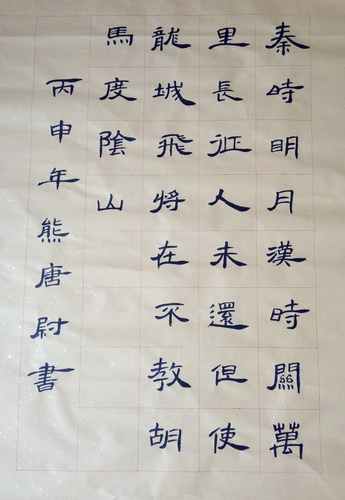 秦時明月漢時關萬
里長征人未還但使
龍城飛將在不教胡
馬度陰山
丙申年熊唐尉書